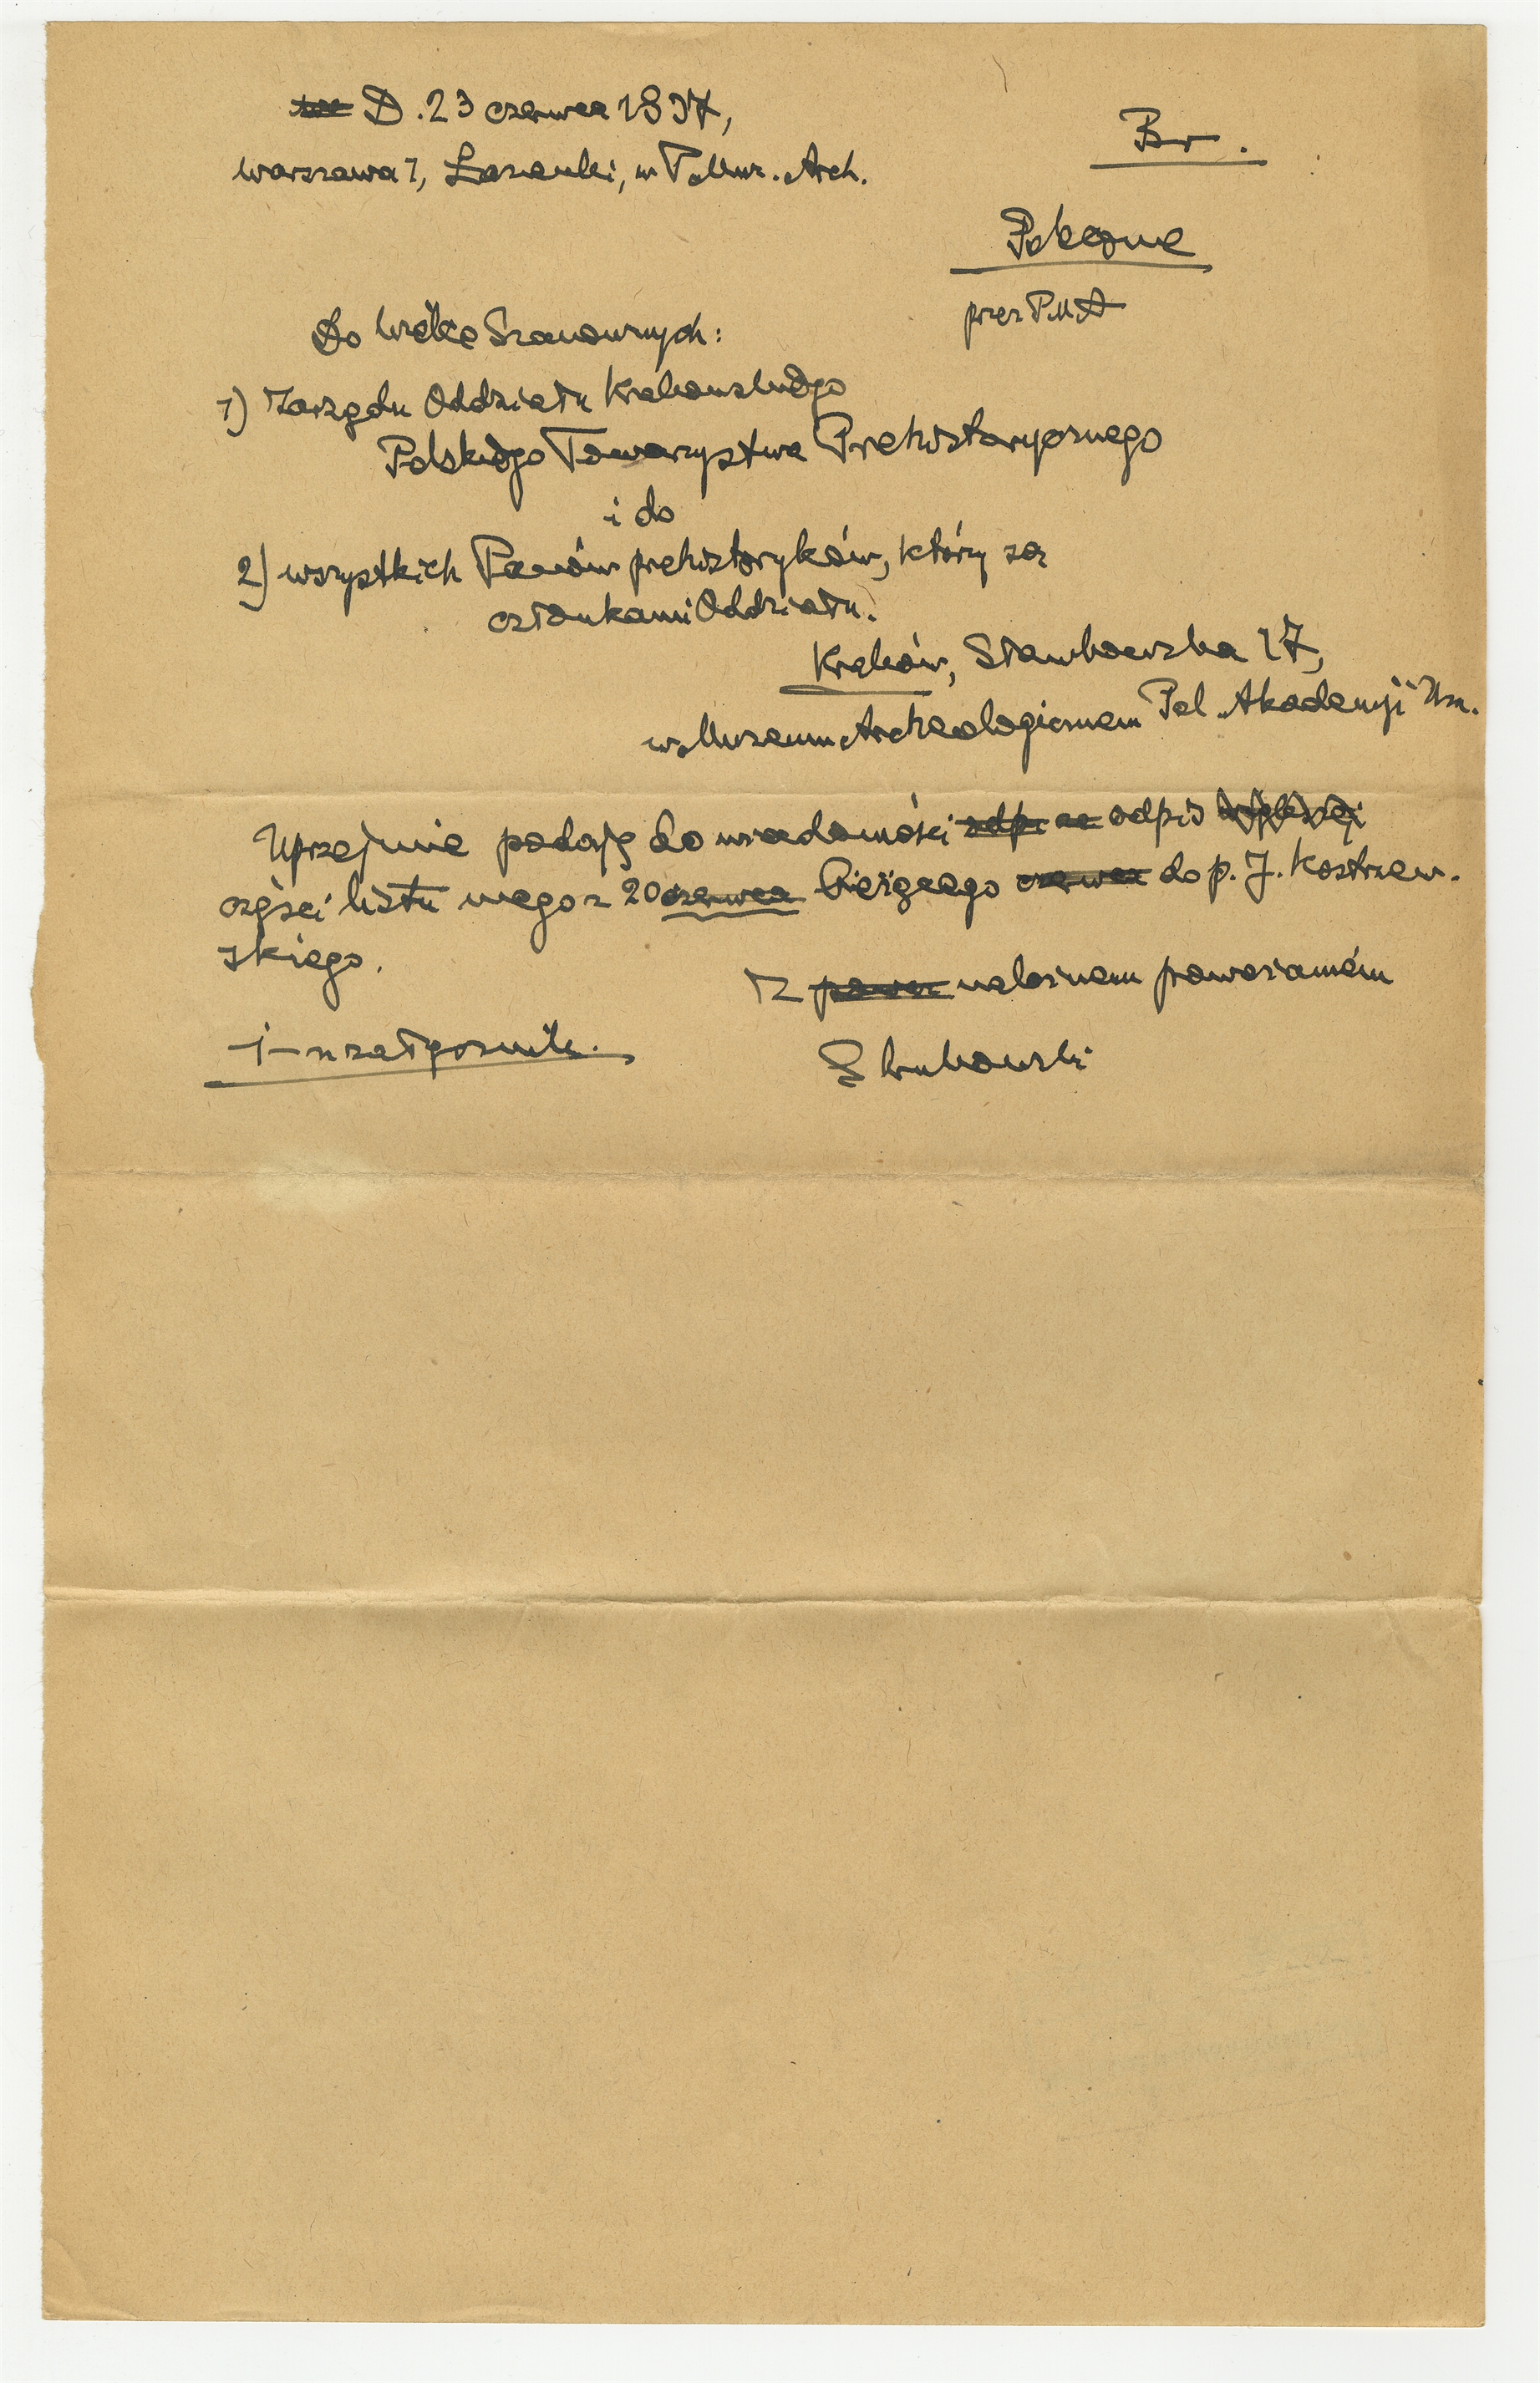 D. 23 czerwca 1937,
Warszawa 1, Łazienki, w P. Muz. Arch.
Br.
Pokojowe
przez PMA
Do Wielce Szanownych:
1) Zarządu Oddziału Krakowskiego
Polskiego Towarzystwa Prehistorycznego
i do
2) wszystkich Panów prehistoryków, którzy są
członkami Oddziału.
Kraków, Sławkowska 17,
w Muzeum Archeologicznem Pol. Akademji Um.
Uprzejmie podaję do wiadomości odpis
części listu mego z 20 czerwca bieżącego do p. J. Kostrzew-
skiego.
Z należnem poważaniem
1 załącznik.
S Krukowski